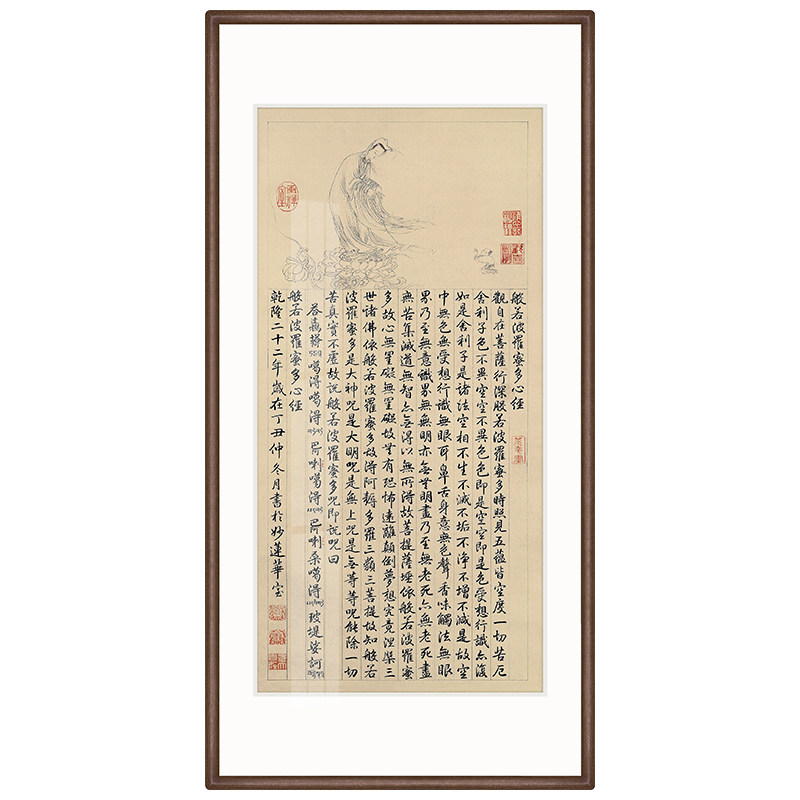 般若波羅蜜多心經
觀自在菩薩行深般若波羅蜜多時照見五蘊皆空度一切苦厄
舍利子色不異空空不異色色即是空空即是色受想行識亦復
如是舍利子是諸法空相不生不滅不垢不淨不增不減是故空
中無色無受想行識無眼耳鼻舌身意無色聲香味觸法無眼
界乃至無意識界無無明亦無無明盡乃至無老死亦無老死盡
無苦集滅道無智亦無得以無所得故菩提薩埵依般若波羅蜜
多故心無罣礙無罣礙故無有恐怖遠離顛倒夢想究竟涅槃三
世諸佛依般若波羅蜜多故得阿耨多羅三藐三菩提故知般若
波羅蜜多是大神呪是大明呪是無上呪是無等等呪能除一切
苦真實不虛故說般若波羅蜜多呪即說呪曰
答嘉塔噶得噶得喇噶得喇桑噶得玻提娑訶
般若波羅蜜多心經
乾隆二十二年歲在丁丑仲冬月書於妙蓮華室